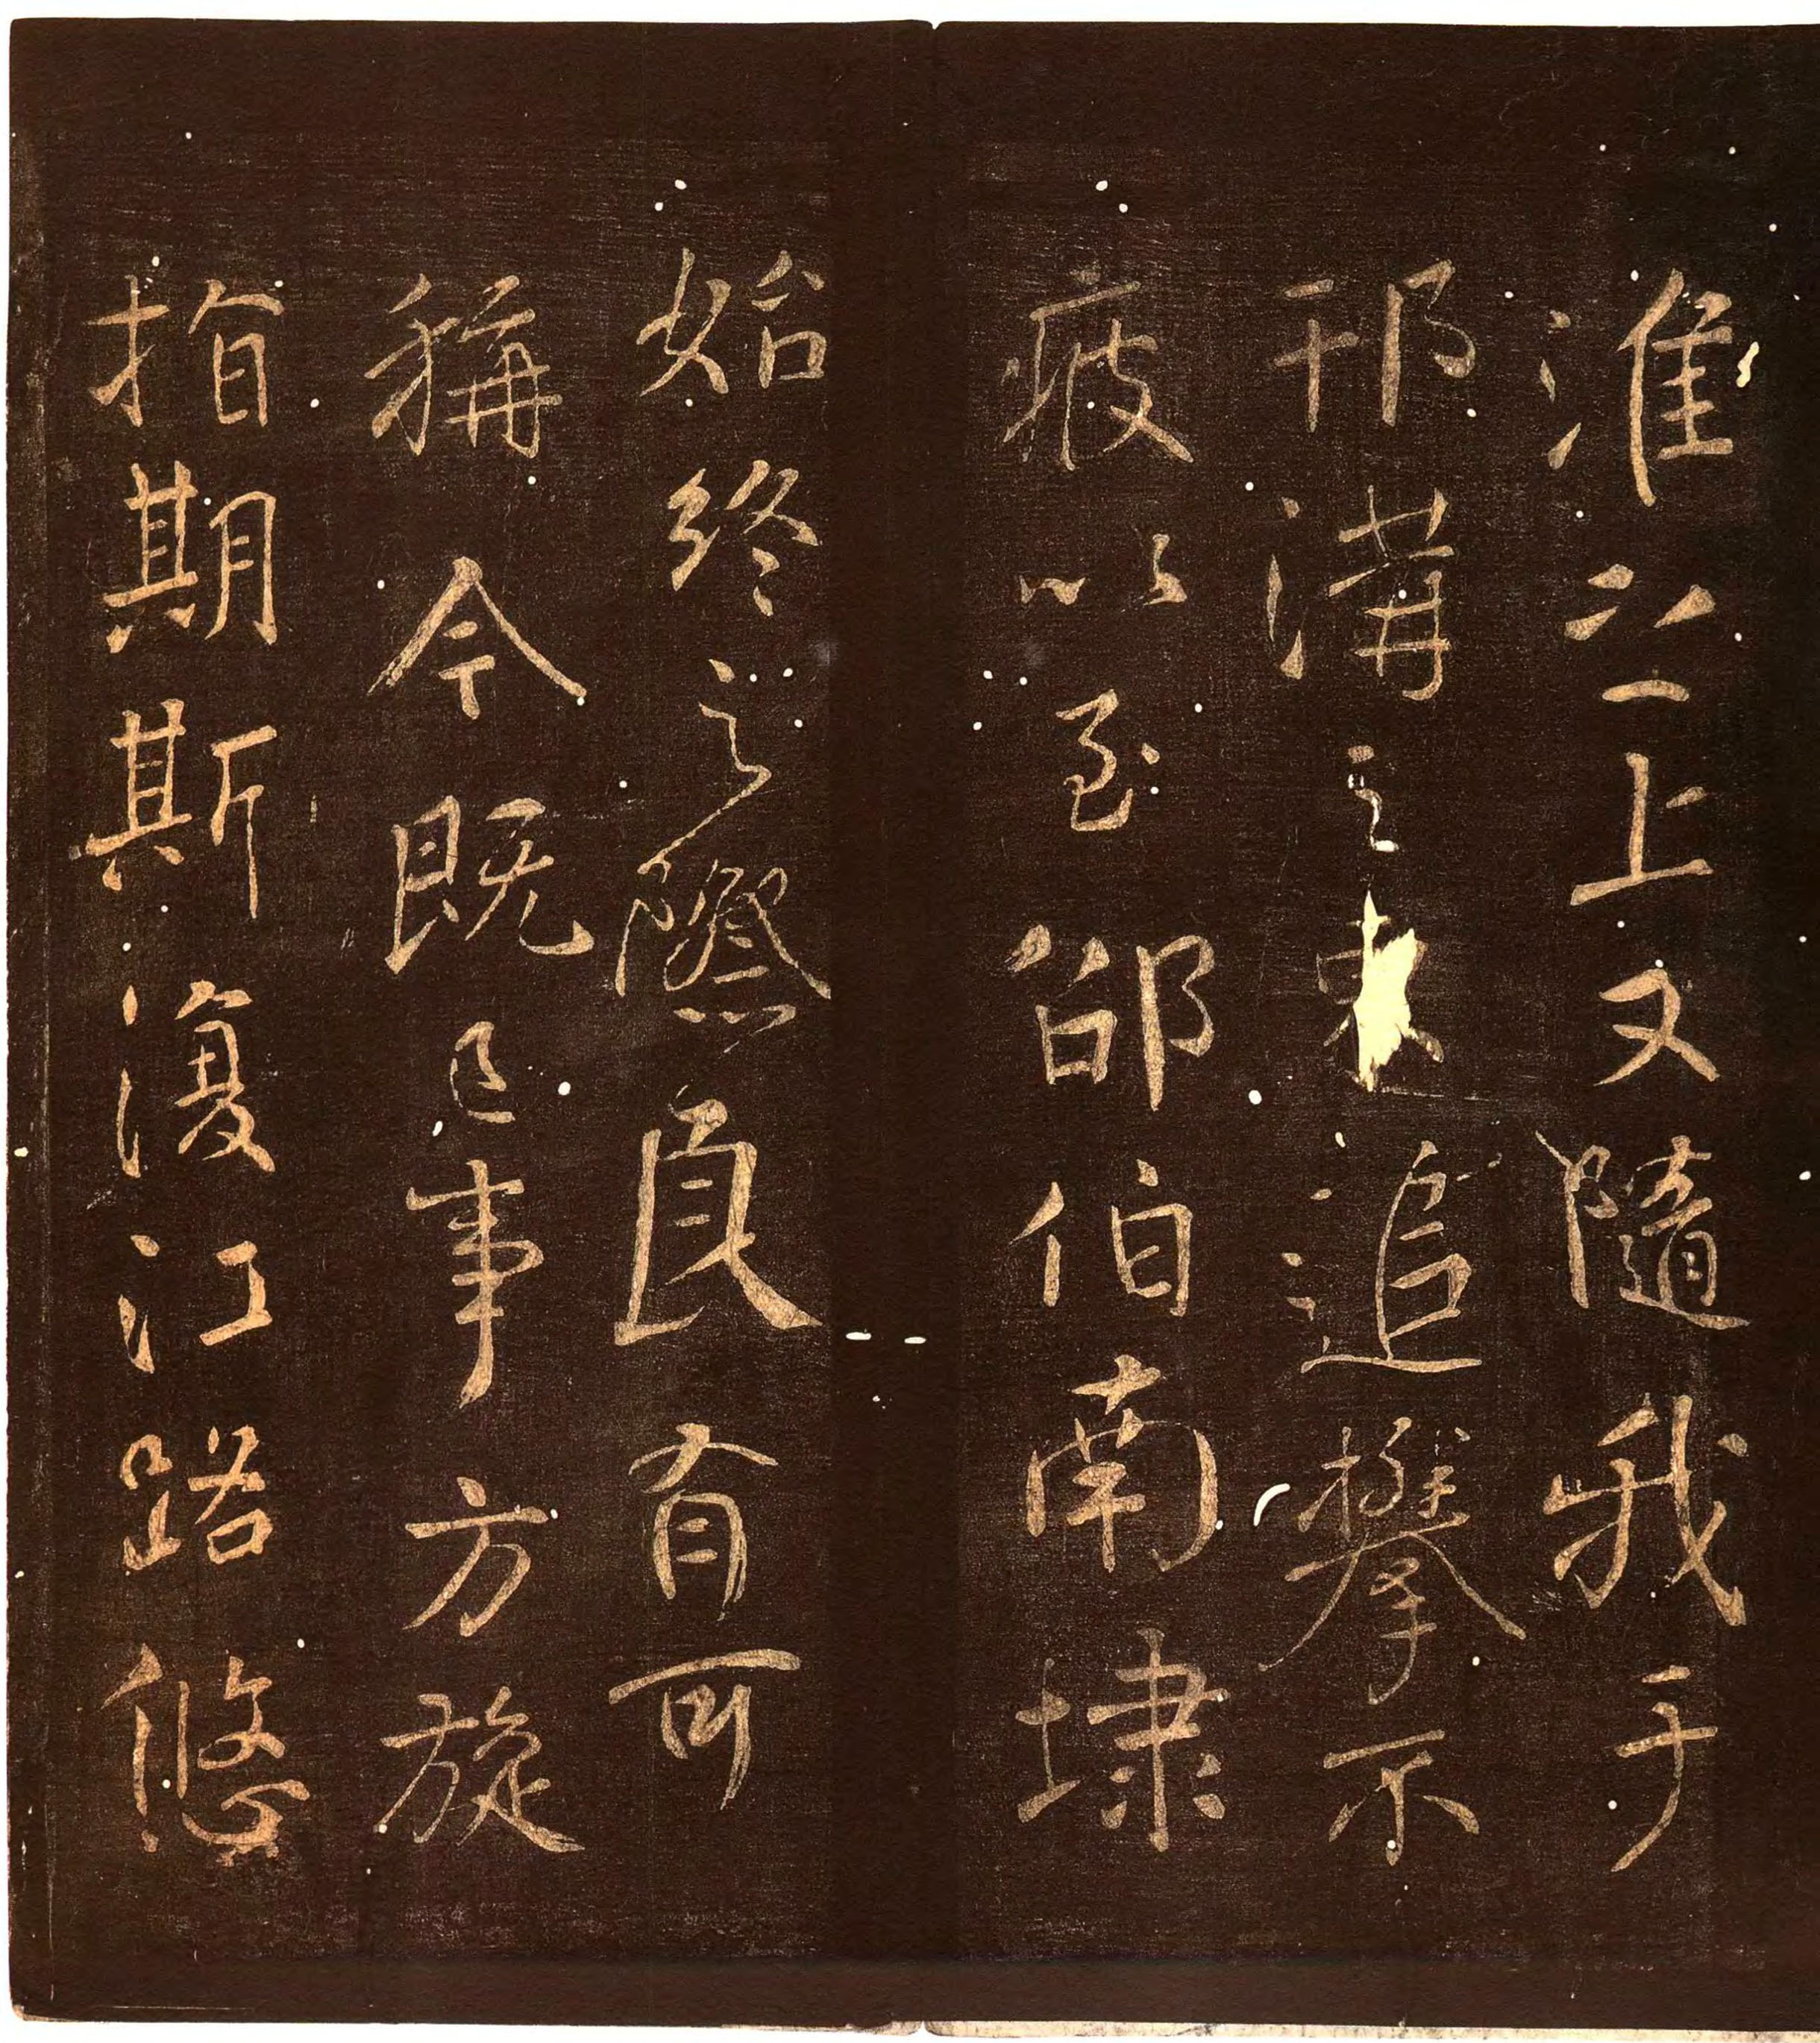 淮之上又隨我于
邗溝之東追攀不
疲以至邵伯南埭
始終之際良有可
稱今既已事方旋
指期斯復江路悠